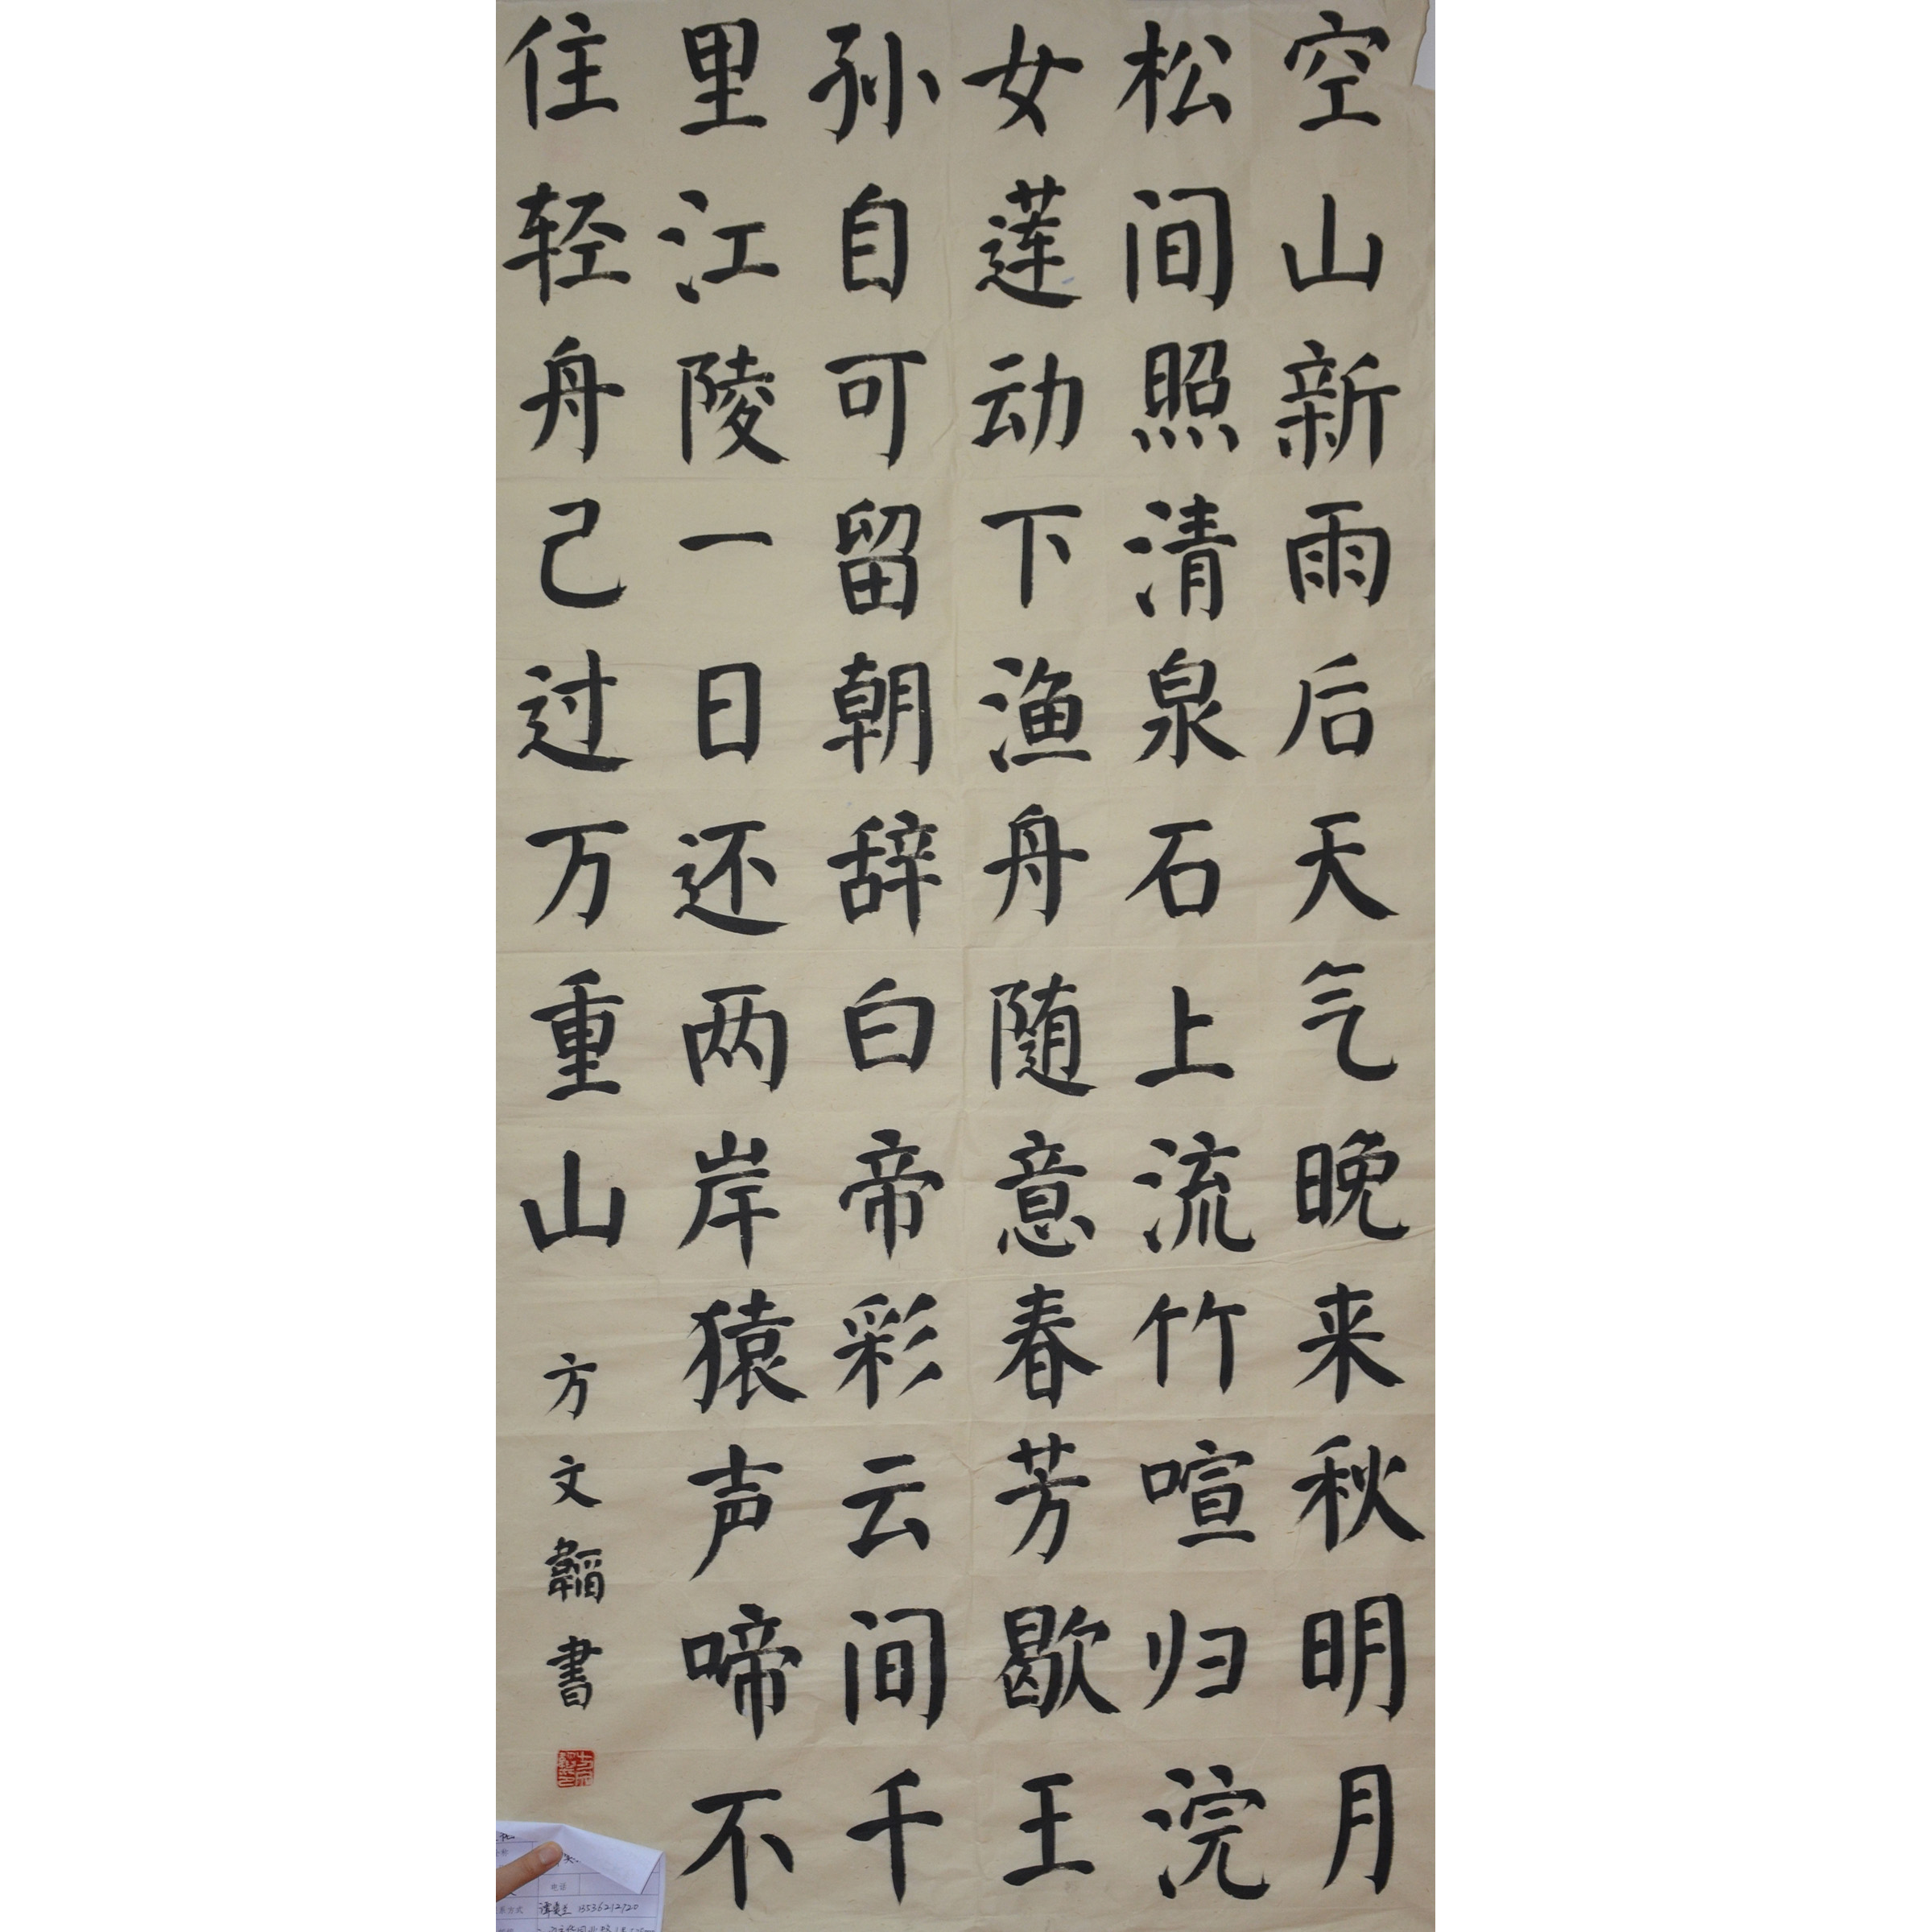 空山新雨后天气晚来秋明月
松间照清泉石上流竹喧归浣
女莲动下渔舟随意春芳歇王
孙自可留朝辞白帝彩云间千
里江陵一日还两岸猿声啼不
住轻舟己过万重山
方文韬書
电话
系方式